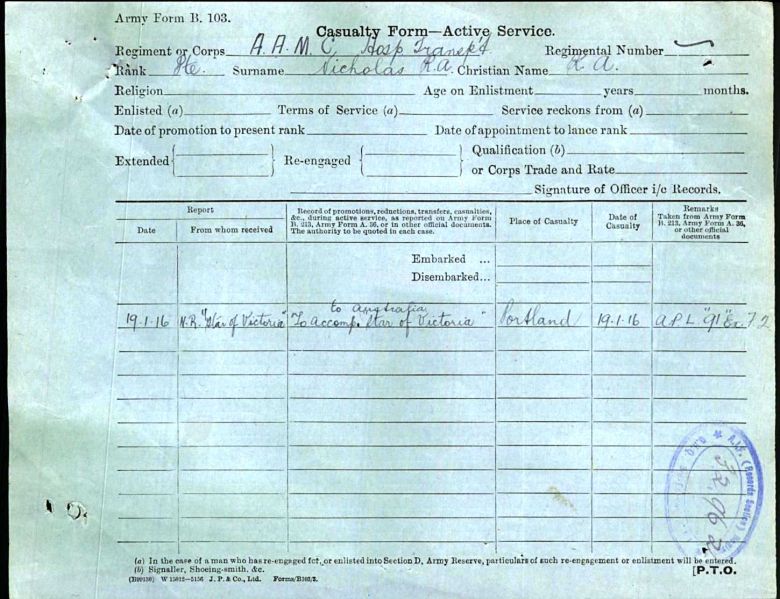 Army Form B. 103.
Casualty Form—Active Service.
Regiment or Corps A. A. M. C. Hosp Transp't Regimental Number
Rank Pte. Surname Nicholas R.A. Christian Name R A.
Religion Age on Enlistment years months.
Enlisted (a) Terms of Service (a) Service reckons from (a)
Date of promotion to present rank Date of appointment to lance rank
Extended { Re-engaged { Qualification (b)
or Corps Trade and Rate
Signature of Officer i/c Records.
Report
Date
From whom received
Record of promotions, reductions, transfers, casualties,
&c., during active service, as reported on Army Form
B. 213, Army Form A. 36, or in other official documents.
The authority to be quoted in each case.
Place of Casualty
Date of
Casualty
Remarks
Taken from Army Form
B. 213, Army Form A. 36,
or other official
documents
Embarked ...
Disembarked...
to Australia
19.1.16 N.R. "Star of Victoria" To Accomp. Star of Victoria" Portland 19.1.16 A.P.L "91" Ex 72
A.I.F. (Records Section)
(a) In the case of a man who has re-engaged for, or enlisted into Section D, Army Reserve, particulars of such re-engagement or enlistment will be entered.
(b) Signaller, Shoeing-smith, &c.
W 15012—5156 J. P. & Co., Ltd. Forms/B103/2.
[P.T.O.